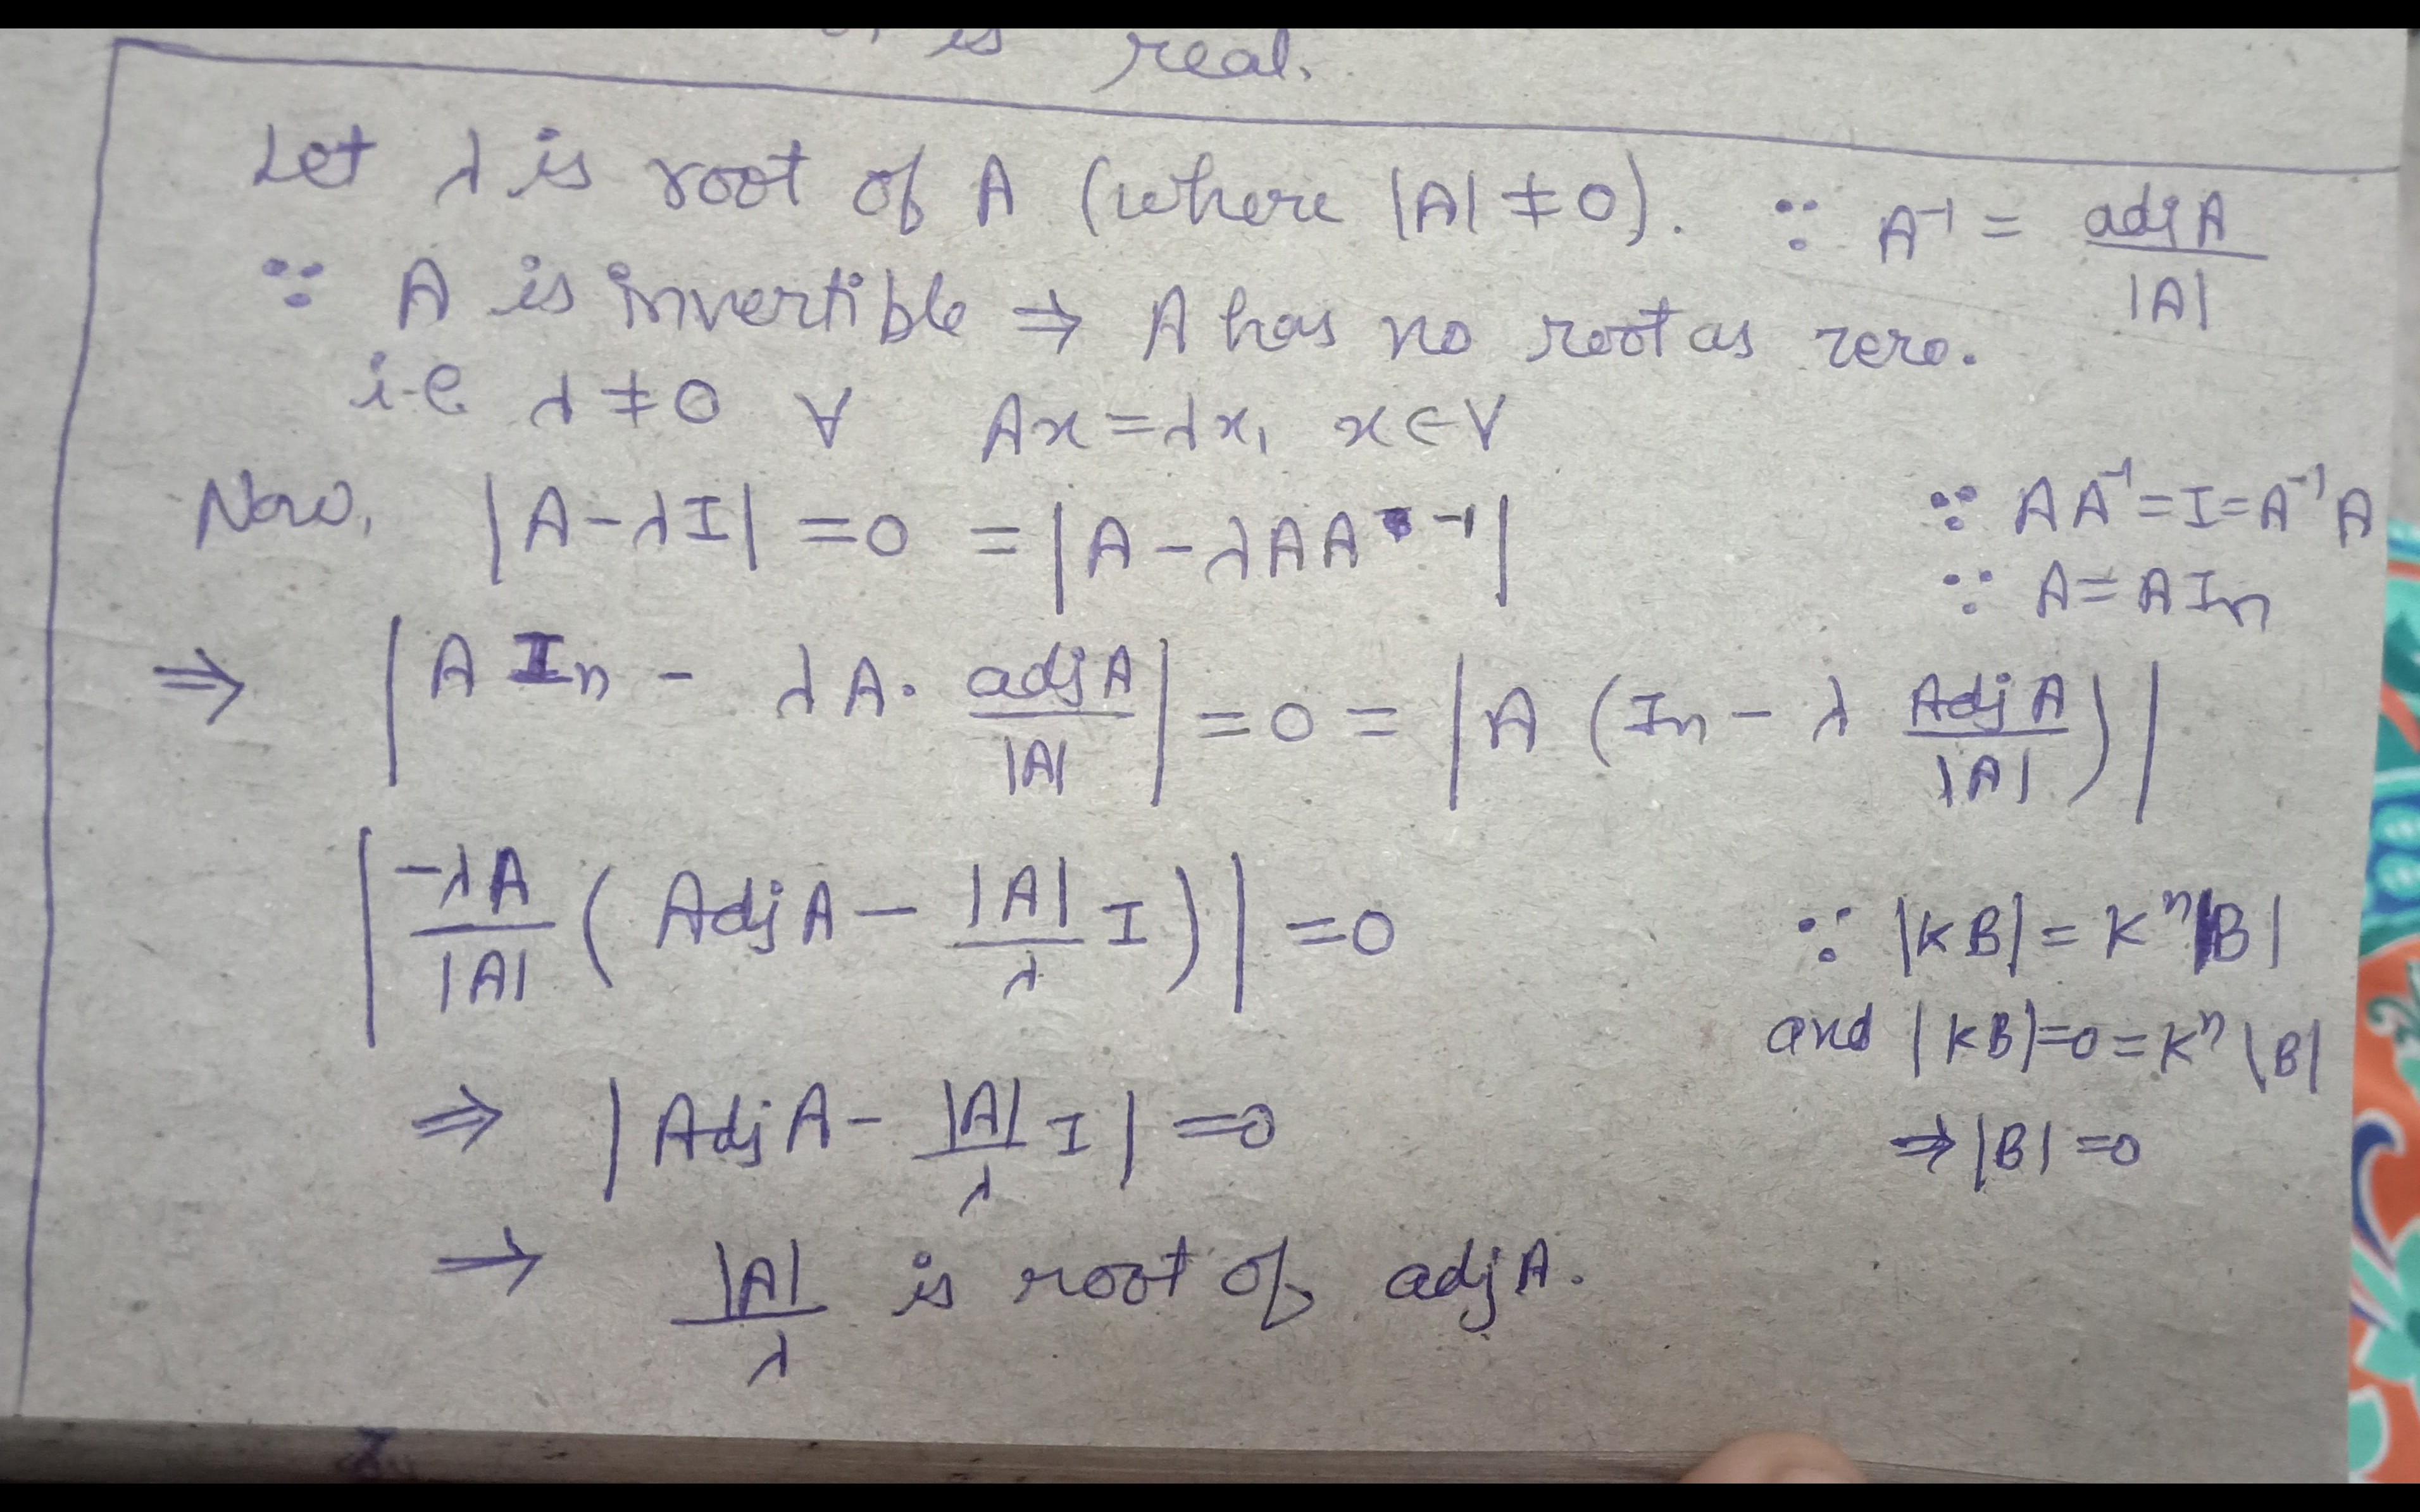 is real.
Let λ is root of A (where |A| ≠ 0). ∵ A⁻¹ = adjA/|A|
∵ A is invertible ⇒ A has no root as zero.
i.e λ ≠ 0 ∀ Ax = λx, x ∈ V
Now, |A - λI| = 0 = |A - λAA⁻¹| ∵ AA⁻¹ = I = A⁻¹A
∵ A = AIn
⇒ |A In - λA. adjA/|A|| = 0 = |A (In - λ AdjA/|A|)|
|-λA/|A| (AdjA - |A|/λ I)| = 0 ∵ |KB| = Kⁿ|B|
and |KB| = 0 = Kⁿ|B|
⇒ |AdjA - |A|/λ I| = 0 ⇒ |B| = 0
→ |A|/λ is root of adjA.